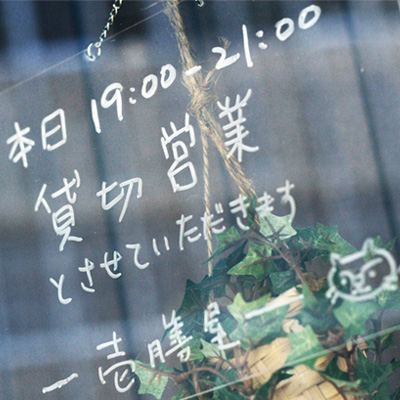 本日 19:00-21:00
貸切営業
とさせていただきます
ー壱膳屋ー